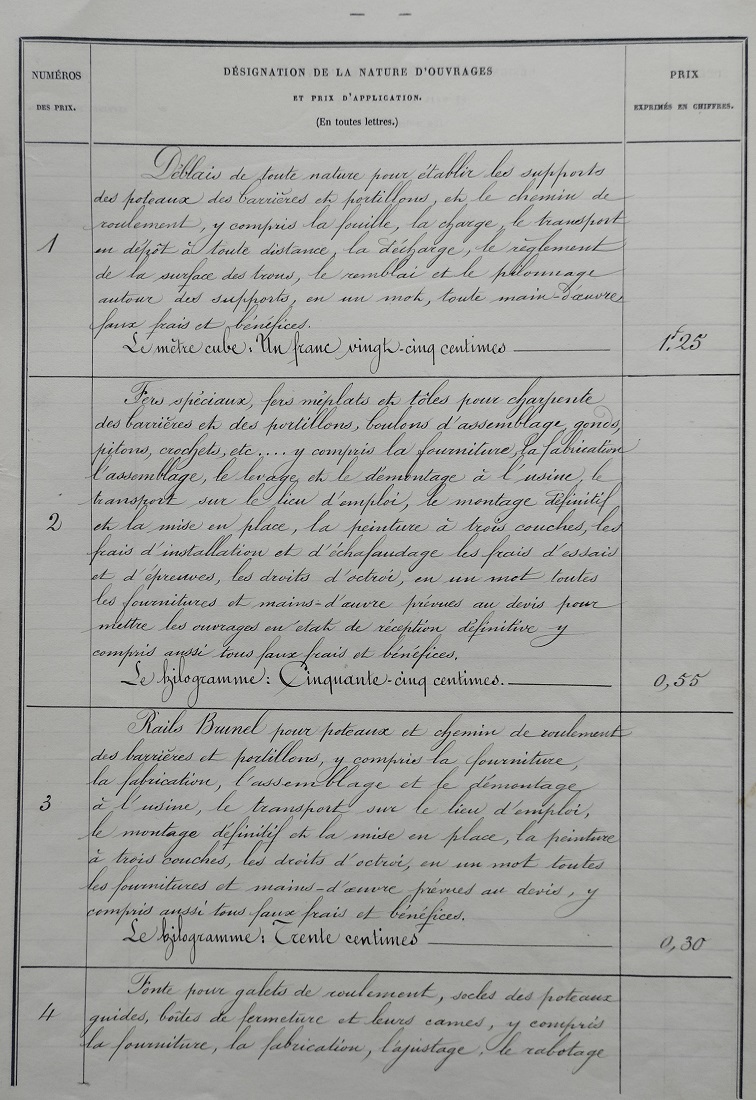 NUMÉROS
DES PRIX.
DÉSIGNATION DE LA NATURE D'OUVRAGES
ET PRIX D'APPLICATION.
(En toutes lettres.)
PRIX
EXPRIMÉS EN CHIFFRES.
1
Déblais de toute nature pour établir les supports
des poteaux des barrières et portillons, et le chemin de
roulement, y compris la fouille, la charge, le transport
en dépôt à toute distance, la décharge, le règlement
de la surface des trous, le remblai et le pilonnage
autour des supports, en un mot, toute main-d'œuvre,
faux frais et bénéfices.
Le mètre cube: Un franc vingt-cinq centimes
1f.25
2
Fers spéciaux, fers méplats et tôles pour charpente
des barrières et des portillons, boulons d'assemblage, gonds,
pitons, crochets, etc.... y compris la fourniture, la fabrication
l'assemblage, le levage et le démontage à l'usine, le
transport sur le lieu d'emploi, le montage définitif
et la mise en place, la peinture à trois couches, les
frais d'installation et d'échafaudage les frais d'essais
et d'épreuves, les droits d'octroi, en un mot toutes
les fournitures et mains-d'œuvre prévues au devis pour
mettre les ouvrages en état de réception définitive y
compris aussi tous faux frais et bénéfices.
Le kilogramme: Cinquante-cinq centimes.
0,55
3
Rails Brunel pour poteaux et chemin de roulement
des barrières et portillons, y compris la fourniture,
la fabrication, l'assemblage et le démontage
à l'usine, le transport sur le lieu d'emploi,
le montage définitif et la mise en place, la peinture
à trois couches, les droits d'octroi, en un mot toutes
les fournitures et mains-d'œuvre prévues au devis, y
compris aussi tous faux frais et bénéfices.
Le kilogramme: Trente centimes
0,30
4
Fonte pour galets de roulement, socles des poteaux
guides, boîtes de fermeture et leurs cames, y compris
la fourniture, la fabrication, l'ajustage, le rabotage